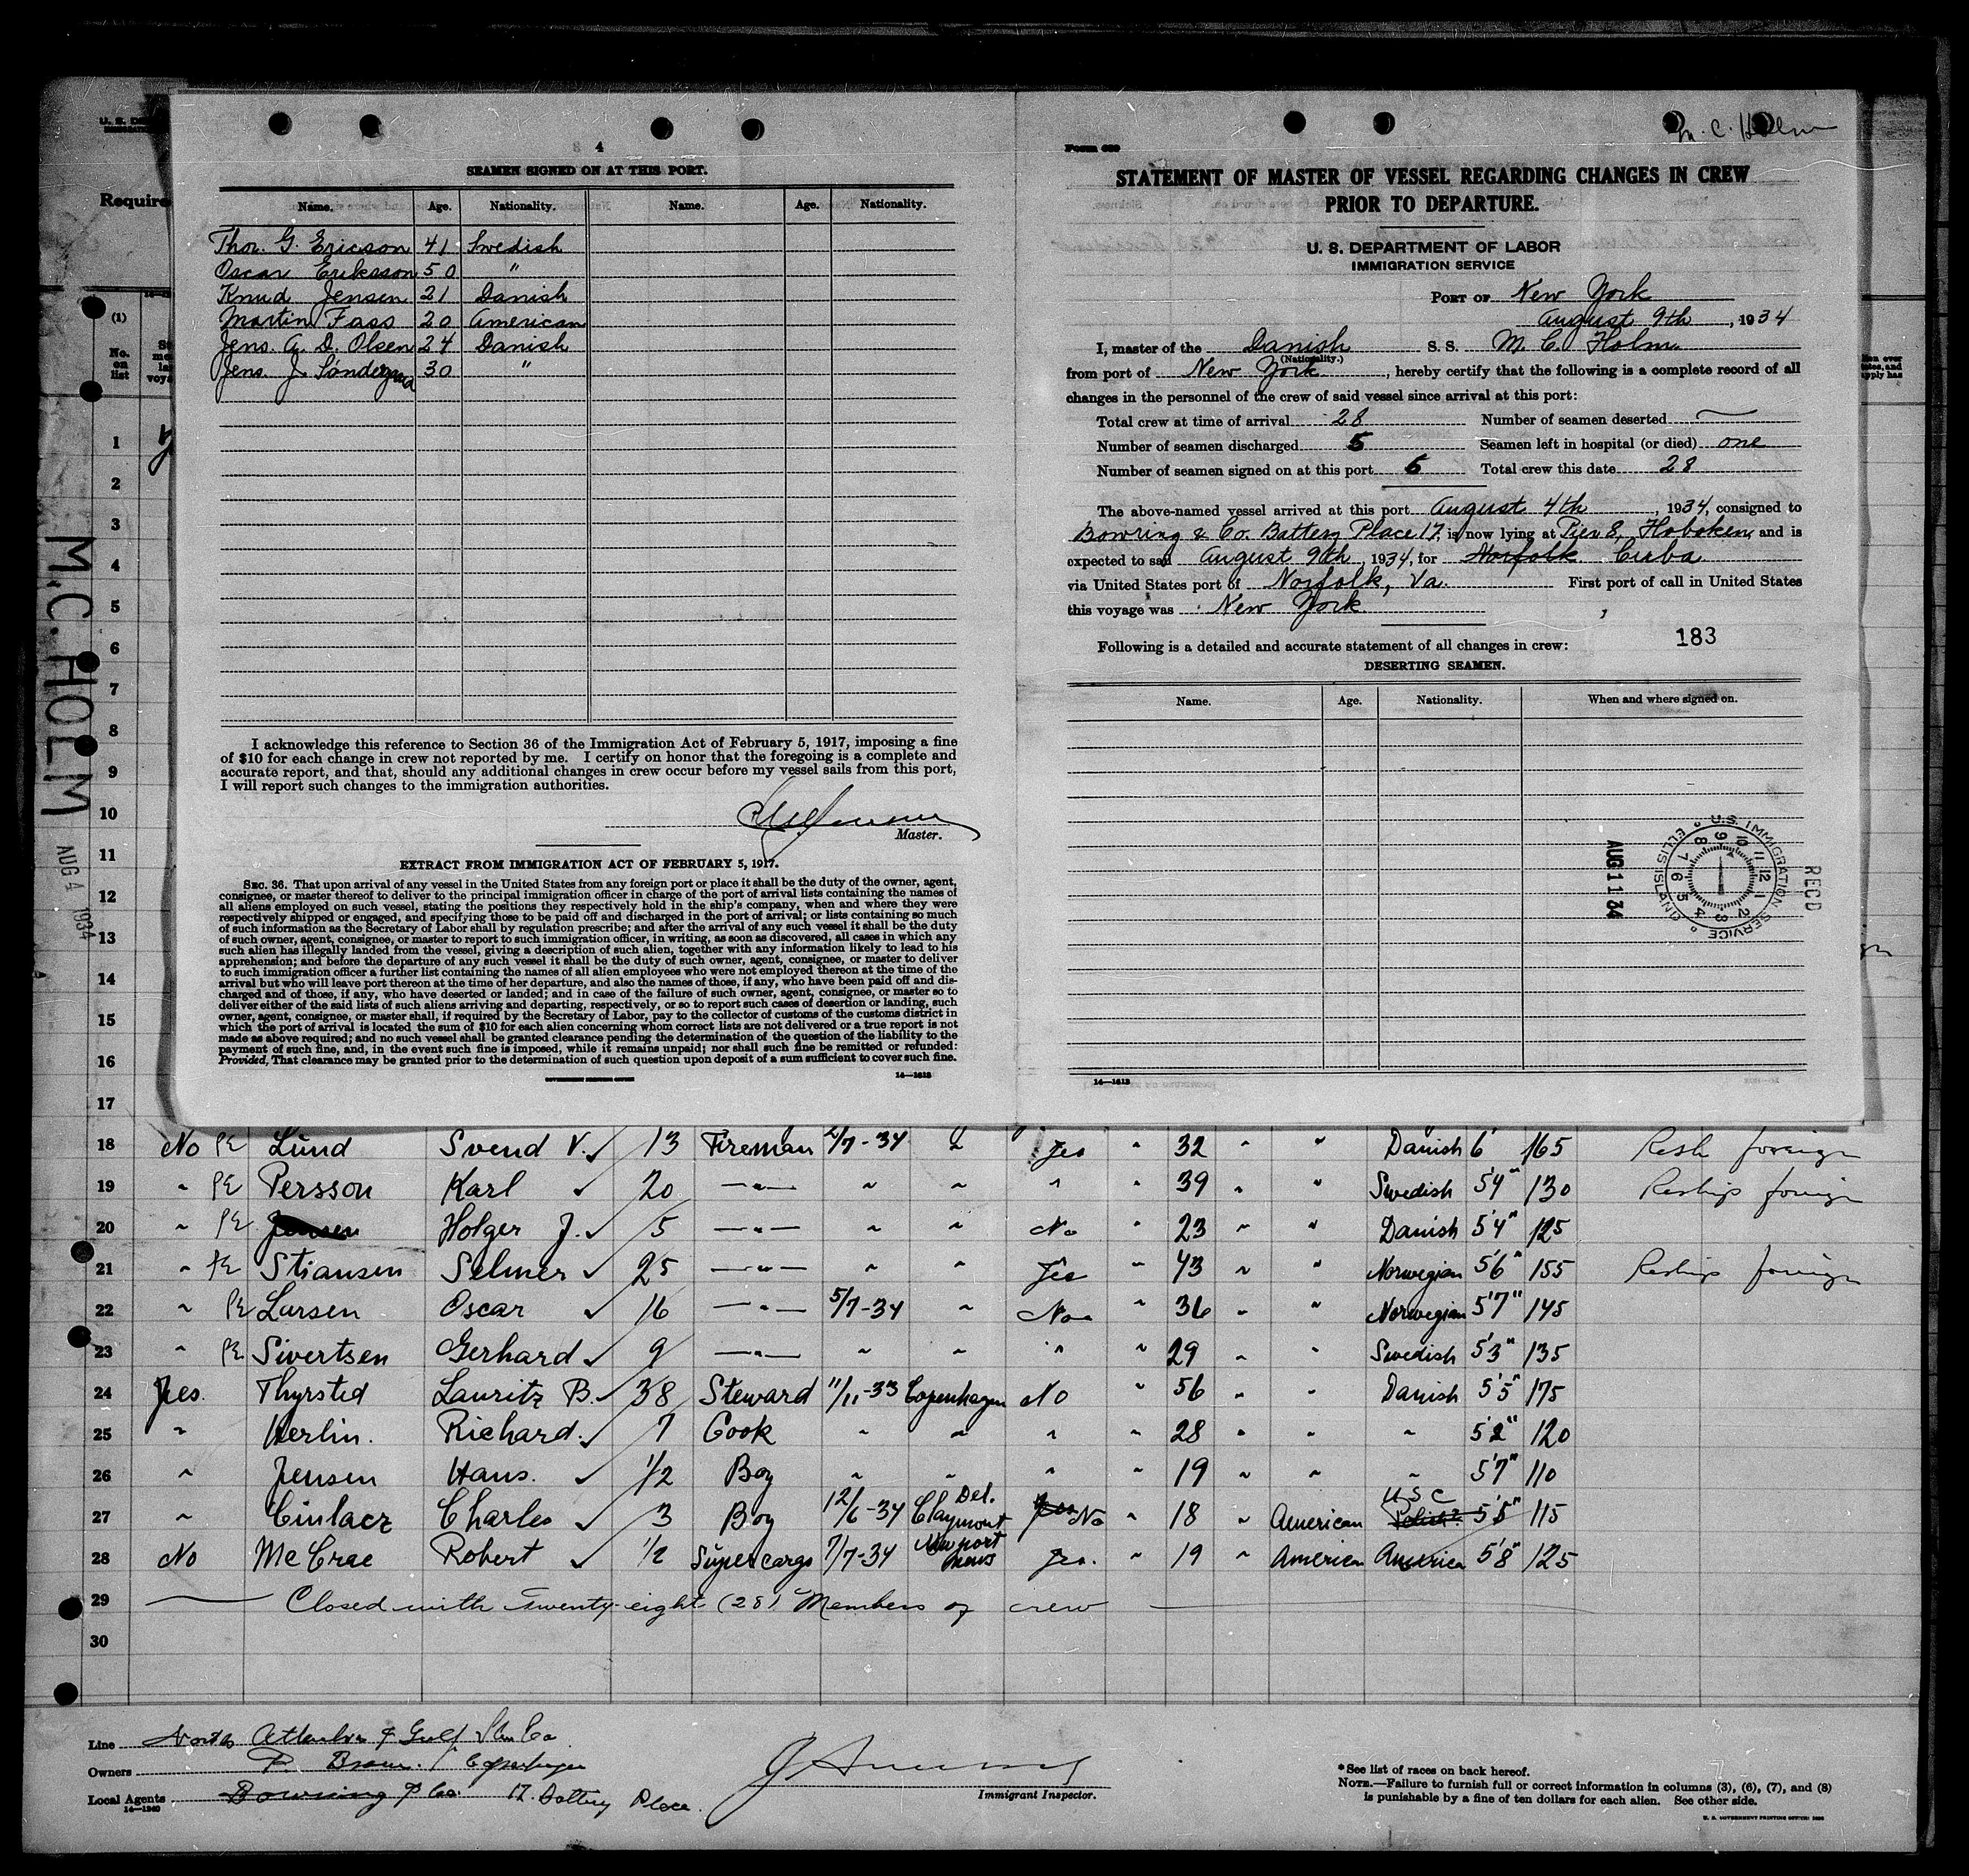 4
SEAMEN SIGNED ON AT THIS PORT.
Name. Age. Nationality. Name. Age. Nationality.
Thor. G. Ericson 41 Swedish
Oscar Eriksson 50 "
Knud Jensen 21 Danish
Martin Fass 20 American
Jens. A. D. Olsen 24 Danish
Jens. J. 30 "
I acknowledge this reference to Section 36 of the Immigration Act of February 5, 1917, imposing a fine
of $10 for each change in crew not reported by me. I certify on honor that the foregoing is a complete and
accurate report, and that, should any additional changes in crew occur before my vessel sails from this port,
I will report such changes to the immigration authorities.
Master.
EXTRACT FROM IMMIGRATION ACT OF FEBRUARY 5, 1917.
SEC. 36. That upon arrival of any vessel in the United States from any foreign port or place it shall be the duty of the owner, agent,
consignee, or master thereof to deliver to the principal immigration officer in charge of the port of arrival lists containing the names of
all aliens employed on such vessel, stating the positions they respectively hold in the ship's company, when and where they were
respectively shipped or engaged, and specifying those to be paid off and discharged in the port of arrival; or lists containing so much
of such information as the Secretary of Labor shall by regulation prescribe; and after the arrival of any such vessel it shall be the duty
of such owner, agent, consignee, or master to report to such immigration officer, in writing, as soon as discovered, all cases in which any
such alien has illegally landed from the vessel, giving a description of such alien, together with any information likely to lead to his
apprehension; and before the departure of any such vessel it shall be the duty of such owner, agent, consignee, or master to deliver
to such immigration officer a further list containing the names of all alien employees who were not employed thereon at the time of the
arrival but who will leave port thereon at the time of her departure, and also the names of those, if any, who have been paid off and dis-
charged and of those, if any, who have deserted or landed; and in case of the failure of such owner, agent, consignee, or master so to
deliver either of the said lists of such aliens arriving and departing, respectively, or so to report such cases of desertion or landing, such
owner, agent, consignee, or master shall, if required by the Secretary of Labor, pay to the collector of customs of the customs district in
which the port of arrival is located the sum of $10 for each alien concerning whom correct lists are not delivered or a true report is not
made as above required; and no such vessel shall be granted clearance pending the determination of the question of the liability to the
payment of such fine, and, in the event such fine is imposed, while it remains unpaid; nor shall such fine be remitted or refunded:
Provided, That clearance may be granted prior to the determination of such question upon deposit of a sum sufficient to cover such fine.
GOVERNMENT PRINTING OFFICE 14—1613
M. C. Holm
Form 689
STATEMENT OF MASTER OF VESSEL REGARDING CHANGES IN CREW
PRIOR TO DEPARTURE.
U. S. DEPARTMENT OF LABOR
IMMIGRATION SERVICE
PORT OF New York
August 9th, 1934
I, master of the Danish S. S. M. C. Holm
(Nationality.)
from port of New York, hereby certify that the following is a complete record of all
changes in the personnel of the crew of said vessel since arrival at this port:
Total crew at time of arrival 28 Number of seamen deserted —
Number of seamen discharged 5 Seamen left in hospital (or died) one
Number of seamen signed on at this port 6 Total crew this date 28
The above-named vessel arrived at this port August 4th, 1934, consigned to
Bowring & Co. Battery Place 17, is now lying at Pier 8, Hoboken, and is
expected to sail August 9th, 1934, for Norfolk Cuba
via United States port of Norfolk, Va. First port of call in United States
this voyage was New York
183
Following is a detailed and accurate statement of all changes in crew:
DESERTING SEAMEN.
Name. Age. Nationality. When and where signed on.
U.S. IMMIGRATION SERVICE ELLIS ISLAND
RECD
AUG 11 34
14—1613
Require
(1)
No. on list
M.C. HOLM
AUG 4 1934
1
2
3
4
5
6
7
8
9
10
11
12
13
14
15
16
17
18 No PE Lund Svend V. 13 Fireman 2/7-34 Yes " 32 " " Danish 6' 165 Resh foreign
19 " PE Persson Karl 20 —"— " " " " 39 " " Swedish 5'4" 130 Reship foreign
20 " PE Jensen Holger J. 5 —"— " " No " 23 " " Danish 5'4" 125
21 " PE Stiansen Selmer 25 —"— " " Yes " 43 " " Norwegian 5'6" 155 Reship foreign
22 " PE Larsen Oscar 16 —"— 5/7-34 " No " 36 " " Norwegian 5'7" 145
23 " PE Sivertsen Gerhard 9 —"— " " " " 29 " " Swedish 5'3" 135
24 Yes. Thyrsted Lauritz B. 38 Steward 11/11-33 Copenhagen No " 56 " " Danish 5'5" 175
25 " Herlin. Richard. 7 Cook " " " " 28 " " " 5'2" 120
26 " Jensen Hans. 1/2 Boy " " " " 19 " " " 5'7" 110
27 " Cinlacz Charles 3 Boy 12/6-34 Claymont Del. Yes No " 18 " American Polish? USC 5'5" 115
28 No McCrae Robert 1/2 Supercargo 7/7-34 Newport News Yes. " 19 " American America 5'8" 125
29 Closed with twenty-eight (28) Members of crew
30
Line North Atlantic & Gulf Stm Co
Owners P. Brown. / Copenhagen
Local Agents Bowring & Co. 17. Battery Place.
14—1240
Immigrant Inspector.
*See list of races on back hereof.
NOTE.—Failure to furnish full or correct information in columns (3), (6), (7), and (8)
is punishable by a fine of ten dollars for each alien. See other side.